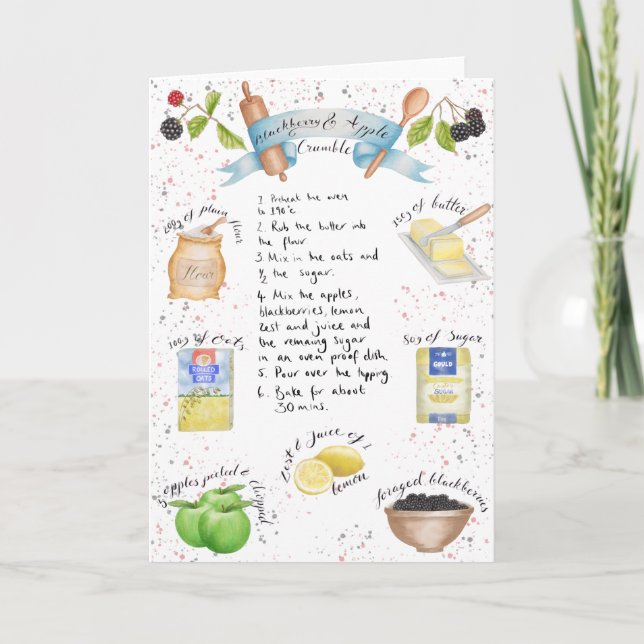 Blackberry & Apple
Crumble
200g of plain flour
150g of butter
flour
1 Preheat the oven
to 190°c
2. Rub the butter into
the flour
3. Mix in the oats and
½ the sugar.
4. Mix the apples,
blackberries, lemon
zest and juice and
the remaing sugar
in an oven proof dish.
5. Pour over the topping.
6. Bake for about
30 mins.
100g of Oats
ROLLED
OATS
80g of Sugar
GOULD
SUGAR
Zest & Juice of 1
lemon
3 apples peeled & chopped
foraged blackberries